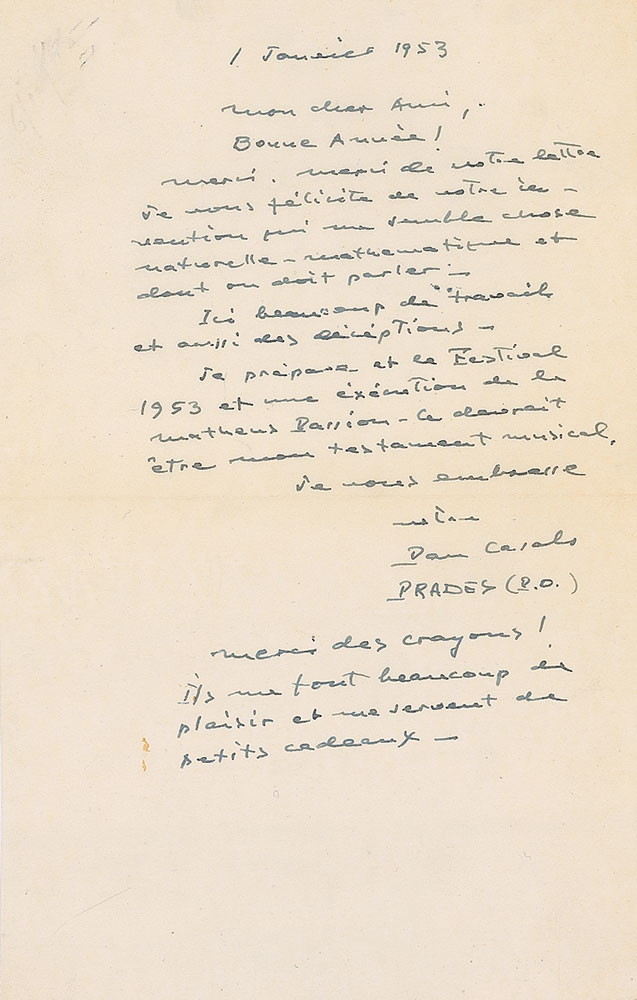 1 Janvier 1953
mon cher Ami,
Bonne Année!
merci. merci de votre lettre
Je vous félicite de votre in-
vention qui me semble chose
naturelle - mathematique et
dont on doit parler. -
Ici beaucoup de travail
et aussi des déceptions -
Je prépare et le Festival
1953 et une éxécution de la
Matheus Passion - Ce devrait
être mon testament musical.
Je vous embrasse
votre
Pau Casals
PRADES (P.O.)
merci des crayons!
Ils me font beaucoup de
plaisir et me servent de
petits cadeaux -